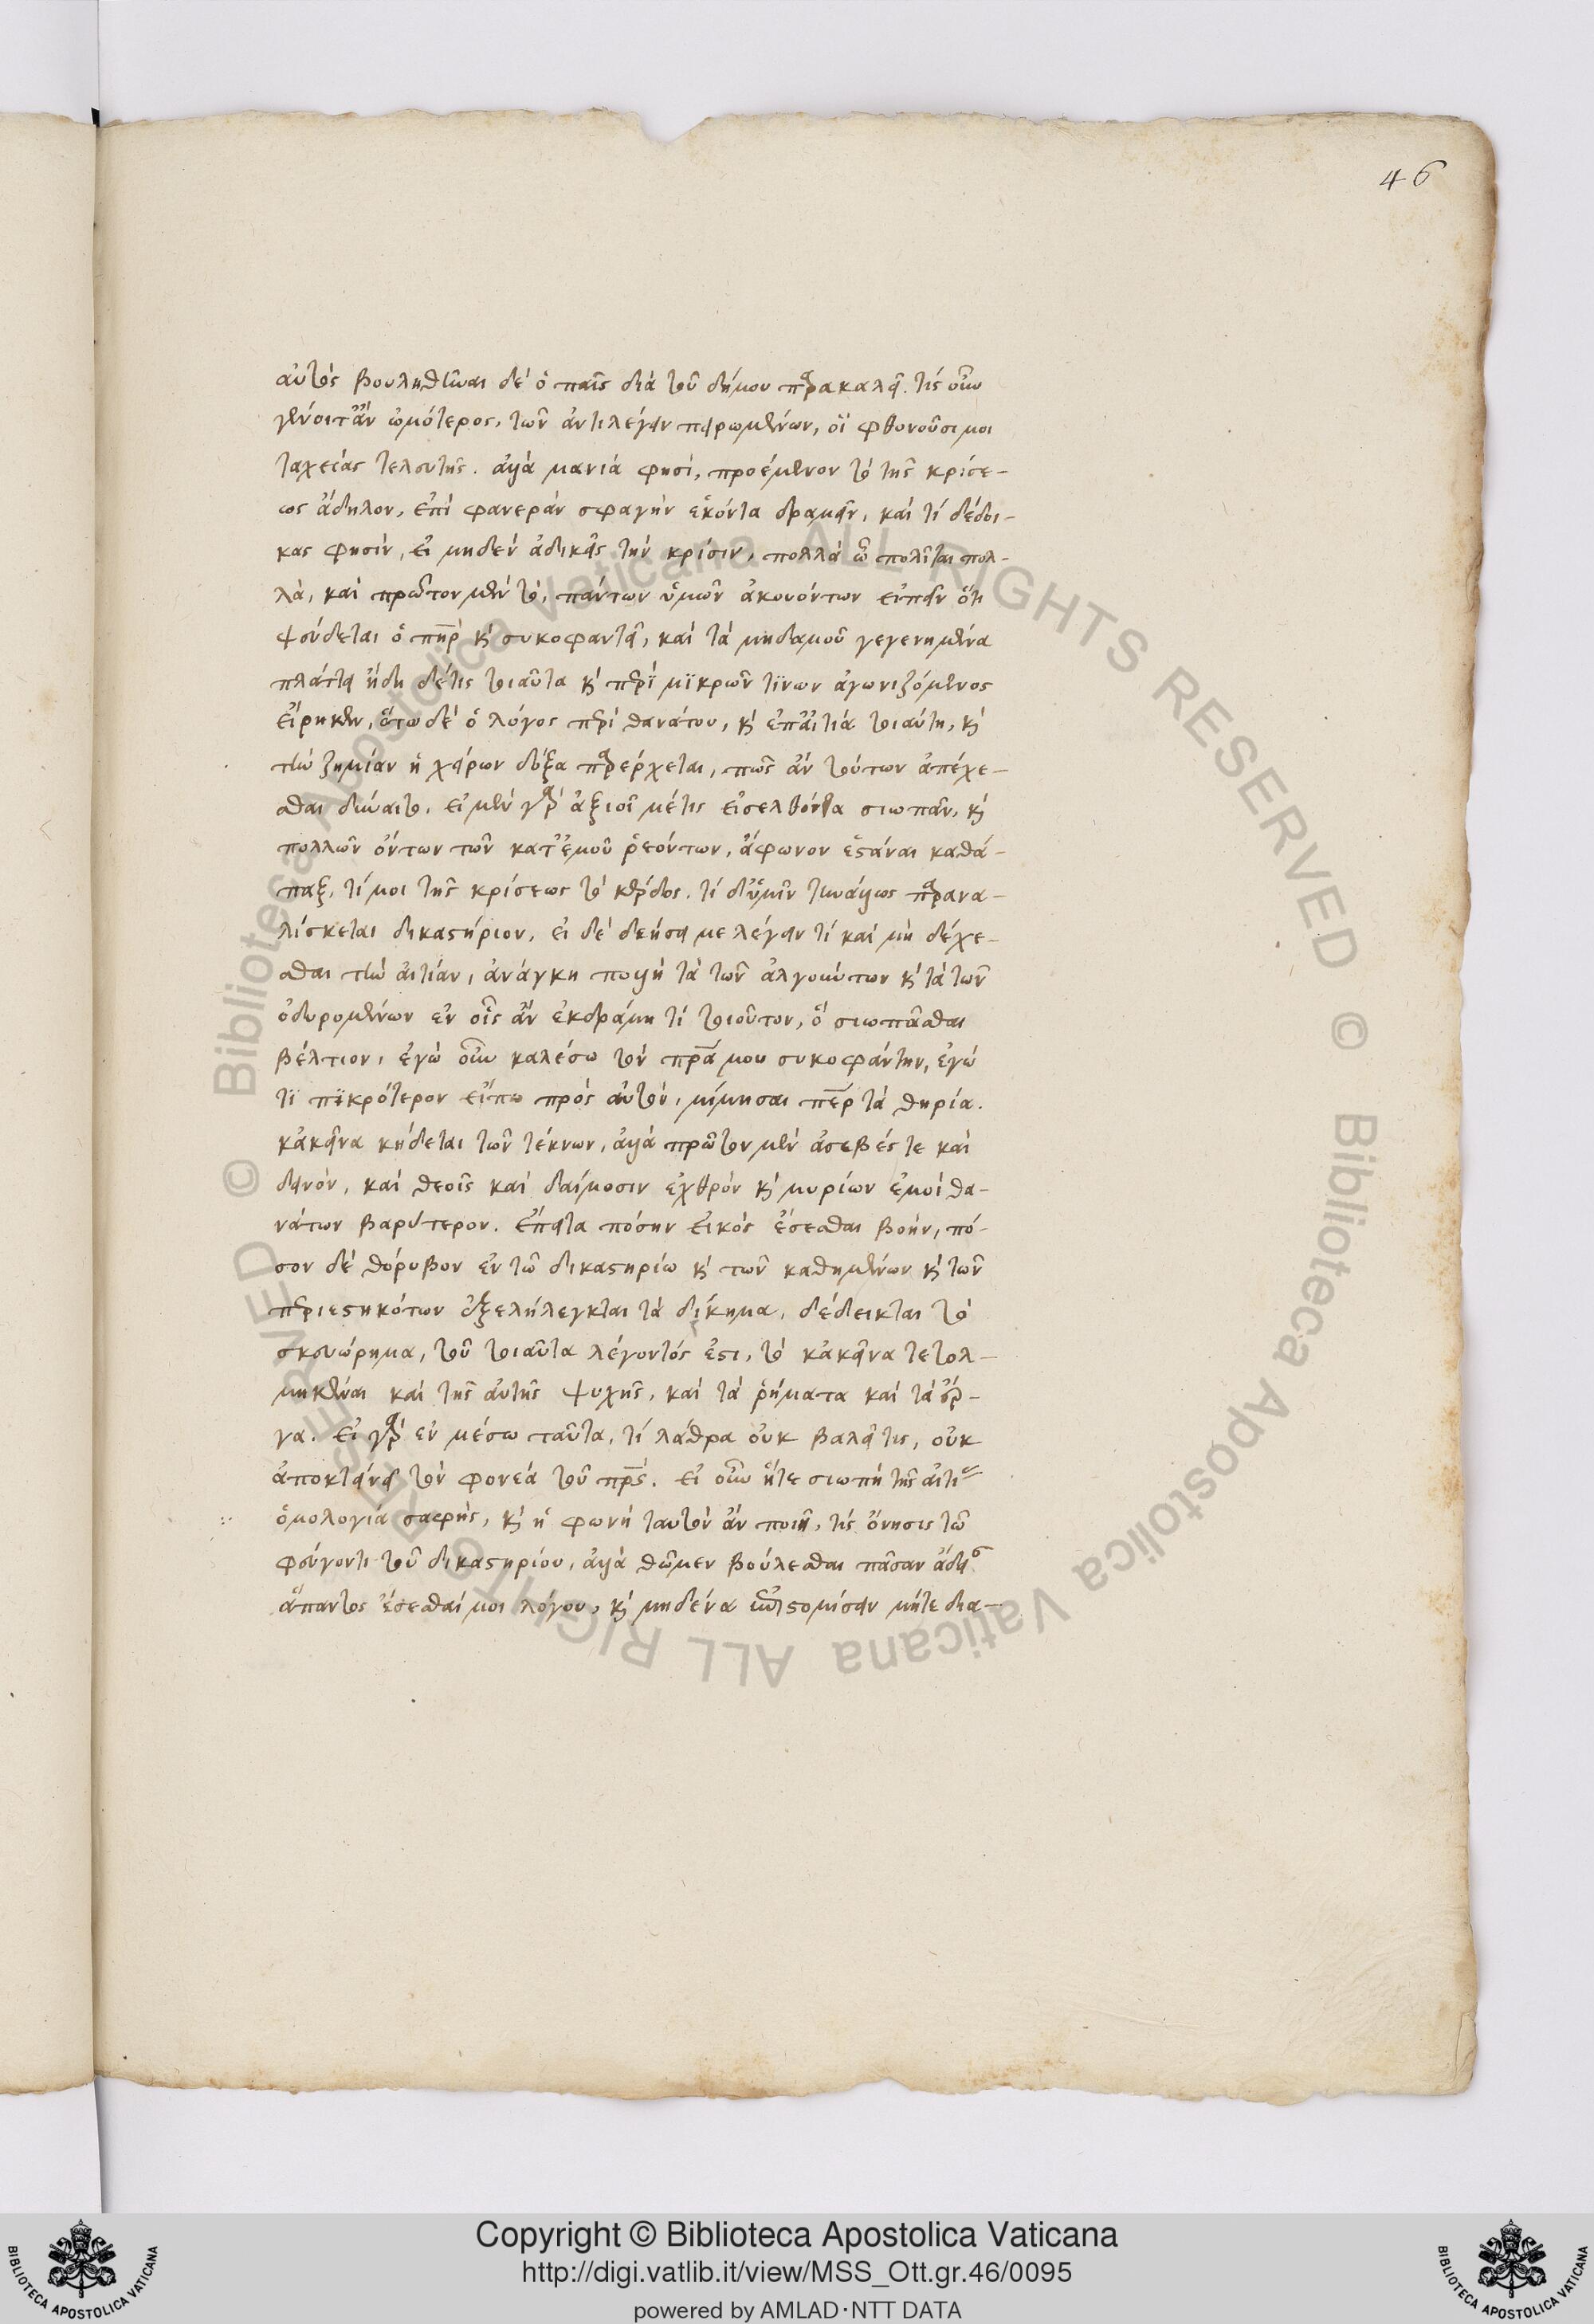 46
αὐτὸς βουληθῆναι δὲ ὁ παῖς διὰ τοῦ δήμου παρακαλεῖ. τίς οὖν
γένοιτ' ἂν ὠμότερος, τῶν ἀντιλέγειν πειρωμένων, οἳ φθονοῦσι μοι
ταχείας τελευτῆς. ἀλλὰ μανία φησὶ, προέμενον τὸ τῆς κρίσε-
ως ἄδηλον, ἐπὶ φανερὰν σφαγὴν ἑκόντα δραμεῖν, καὶ τί δέδοι-
κας φησὶν, εἰ μηδὲν ἀδικεῖς τὴν κρίσιν, πολλὰ ὦ πολῖται πολ-
λὰ, καὶ πρῶτον μὲν τὸ, πάντων ὑμῶν ἀκουόντων εἰπεῖν ὅτι
ψεύδεται ὁ πηρ καὶ συκοφαντεῖ, καὶ τὰ μηδαμοῦ γεγενημένα
πλάττει ἤδη δέ τις τοιαῦτα καὶ περὶ μικρῶν τινων ἀγωνιζόμενος
εἴρηκεν, ὅτω δὲ ὁ λόγος περὶ θανάτου, καὶ ἐπ' αἰτία τοιαύτη, καὶ
τὴν ζημίαν ἡ χείρων δόξα παρέρχεται, πῶς ἂν τούτων ἀπέχε-
σθαι δύναιτο. εἰ μὲν γὰρ ἀξιοῖ μέ τις εἰσελθόντα σιωπᾶν, καὶ
πολλῶν ὄντων τῶν κατ' ἐμοῦ ῥεόντων, ἄφωνον ἑστάναι καθά-
παξ, τί μοι τῆς κρίσεως τὸ κέρδος. τί δ' ὑμῖν τηνάλλως παρανα-
λίσκεται δικαστήριον, εἰ δὲ δεήσει με λέγειν τί καὶ μὴ δέχε-
σθαι τὴν αἰτίαν, ἀνάγκη που ἢ τὰ τῶν ἀλγούντων καὶ τὰ τῶν
ὀδυρομένων ἐν οἷς ἂν ἐκδράμη τί τοιοῦτον, ὃ σιωπᾶσθαι
βέλτιον, ἐγὼ οὖν καλέσω τὸν πρα μου συκοφάντην, ἐγώ
τι πικρότερον εἴπω πρὸς αὐτὸν, μίμησαι περ τὰ θηρία.
κἀκεῖνα κήδεται τῶν τέκνων, ἀλλὰ πρῶτον μὲν ἀσεβές τε καὶ
δεινὸν, καὶ θεοῖς καὶ δαίμοσιν ἐχθρὸν καὶ μυρίων ἐμοὶ θα-
νάτων βαρύτερον. ἔπειτα πόσην εἰκὸς ἔσεσθαι βοὴν, πό-
σον δὲ θόρυβον ἐν τῶ δικαστηρίω καὶ τῶν καθημένων καὶ τῶν
περιεστηκότων ἐξελήλεγκται τὰ δίκημα, δέδεικται τὸ
σκευώρημα, τοῦ τοιαῦτα λέγοντός ἐστι, τὸ κἀκεῖνα τετολ-
μηκέναι καὶ τῆς αὐτῆς ψυχῆς, καὶ τὰ ῥήματα καὶ τὰ ἔρ-
γα. εἰ γὰρ ἐν μέσω ταῦτα, τί λάθρα οὐκ βαλεῖ τις, οὐκ
ἀποκτείνει τὸν φονέα τοῦ πρς. εἰ οὖν ἥτε σιωπὴ τῆς αἰτίας
ὁμολογία σαφὴς, καὶ ἡ φωνὴ ταυτὸν ἂν ποιῆ, τίς ὄνησις τῶ
φεύγοντι τοῦ δικαστηρίου, ἀλλὰ θῶμεν βούλεσθαι πᾶσαν ἄδειαν
ἅπαντος ἔσεσθαί μοι λόγου, καὶ μηδένα ἐπιστομίσειν μήτε δια-
Copyright © Biblioteca Apostolica Vaticana
http://digi.vatlib.it/view/MSS_Ott.gr.46/0095
powered by AMLAD·NTT DATA
BIBLIOTECA APOSTOLICA VATICANA
BIBLIOTECA APOSTOLICA VATICANA
© Biblioteca Apostolica Vaticana ALL RIGHTS RESERVED
© Biblioteca Apostolica Vaticana ALL RIGHTS RESERVED